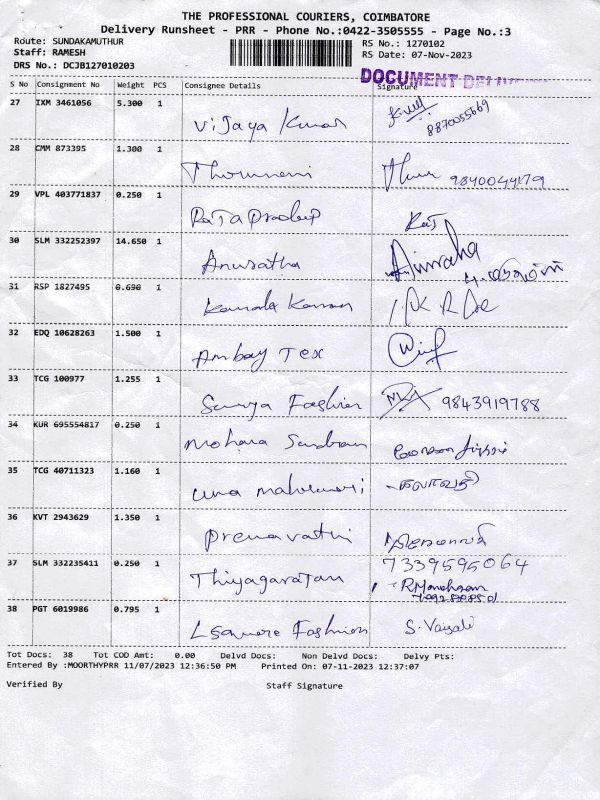 THE PROFESSIONAL COURIERS, COIMBATORE
Delivery Runsheet - PRR - Phone No.:0422-3505555 - Page No.:3
Route: SUNDAKAMUTHUR
Staff: RAMESH
DRS No.: DCJB127010203
RS No.: 1270102
RS Date: 07-Nov-2023
DOCUMENT
S No Consignment No Weight PCS Consignee Details Signature
27 IXM 3461056 5.300 1 Vijaya Kumar
8870055669
28 CMM 873395 1.300 1 9840044179
29 VPL 403771837 0.250 1 Raja Pradeep Raj
30 SLM 332252397 14.650 1 Anusatha Anuradha
31 RSP 1827495 0.690 1 Kamala Kannan
32 EDQ 10628263 1.500 1 Ambay Tex
33 TCG 100977 1.255 1 Surya Fashion 9843919788
34 KUR 695554817 0.250 1 Mohana Sundram
35 TCG 40711323 1.160 1 Uma Maheswari
36 KVT 2943629 1.350 1 Premavathi
37 SLM 332235411 0.250 1 Thiyagarajan 7339595064
38 PGT 6019986 0.795 1 Lsquare Fashion S. Vaisali
Tot Docs: 38 Tot COD Amt: 0.00 Delvd Docs: Non Delvd Docs: Delvy Pts:
Entered By :MOORTHYPRR 11/07/2023 12:36:50 PM Printed On: 07-11-2023 12:37:07
Verified By Staff Signature